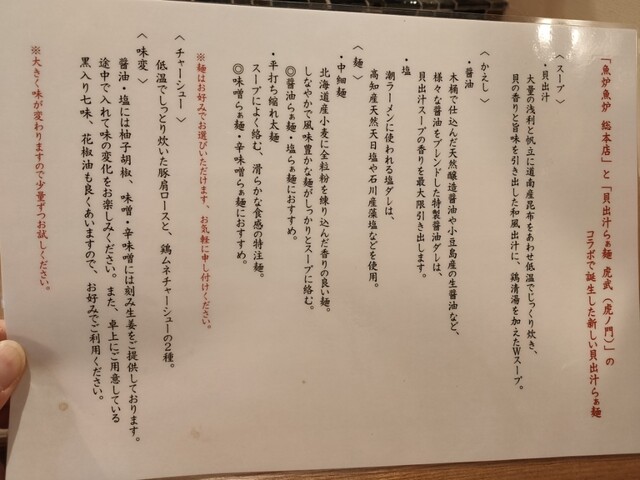 「魚炉魚炉 総本店」と「貝出汁らぁ麺 虎武(虎ノ門)」の
コラボで誕生した新しい貝出汁らぁ麺
〈スープ〉
・貝出汁
大量の浅利と帆立に道南産昆布をあわせ低温でじっくり炊き、
貝の香りと旨味を引き出した和風出汁に、鶏清湯を加えたWスープ。
〈かえし〉
・醤油
木桶で仕込んだ天然醸造醤油や小豆島産の生醤油など、
様々な醤油をブレンドした特製醤油ダレは、
貝出汁スープの香りを最大限引き出します。
・塩
潮ラーメンに使われる塩ダレは、
高知産天然天日塩や石川産藻塩などを使用。
〈麺〉
・中細麺
北海道産小麦に全粒粉を練り込んだ香りの良い麺。
しなやかで風味豊かな麺がしっかりとスープに絡む。
◎醤油らぁ麺・塩らぁ麺におすすめ。
・平打ち縮れ太麺
スープによく絡む、滑らかな食感の特注麺。
◎味噌らぁ麺・辛味噌らぁ麺におすすめ。
※麺はお好みでお選びいただけます、お気軽に申し付けください。
〈チャーシュー〉
低温でしっとり炊いた豚肩ロースと、鶏ムネチャーシューの2種。
〈味変〉
醤油・塩には柚子胡椒、味噌・辛味噌には刻み生姜をご提供しております。
途中で入れて味の変化をお楽しみください。また、卓上にご用意している
黒入り七味、花椒油も良くあいますので、お好みでご利用ください。
※大きく味が変わりますので少量ずつお試しください。